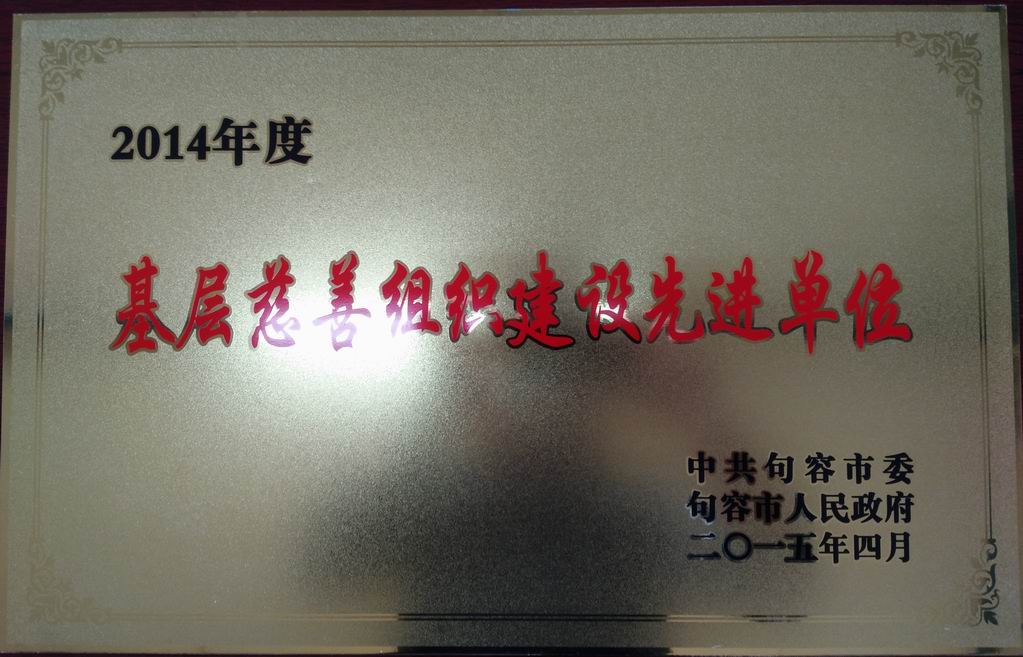 2014年度
基层慈善组织建设先进单位
中共句容市委
句容市人民政府
二〇一五年四月